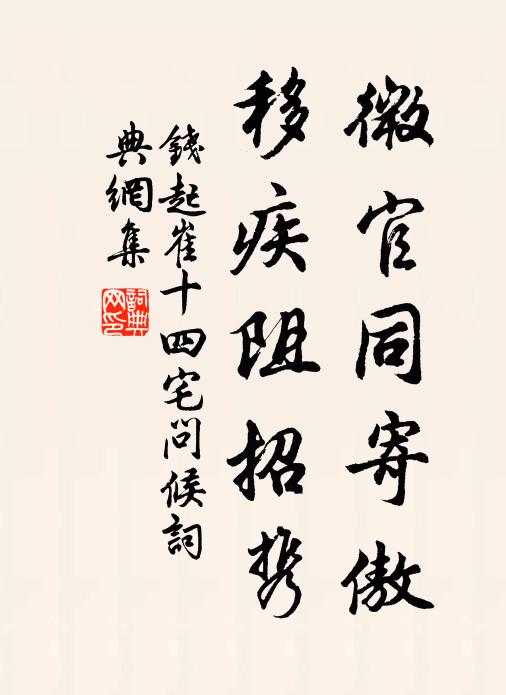 微官同寄傲
移疾阻招携
錢起崔十四宅問候詞
典網集
詞典
网印